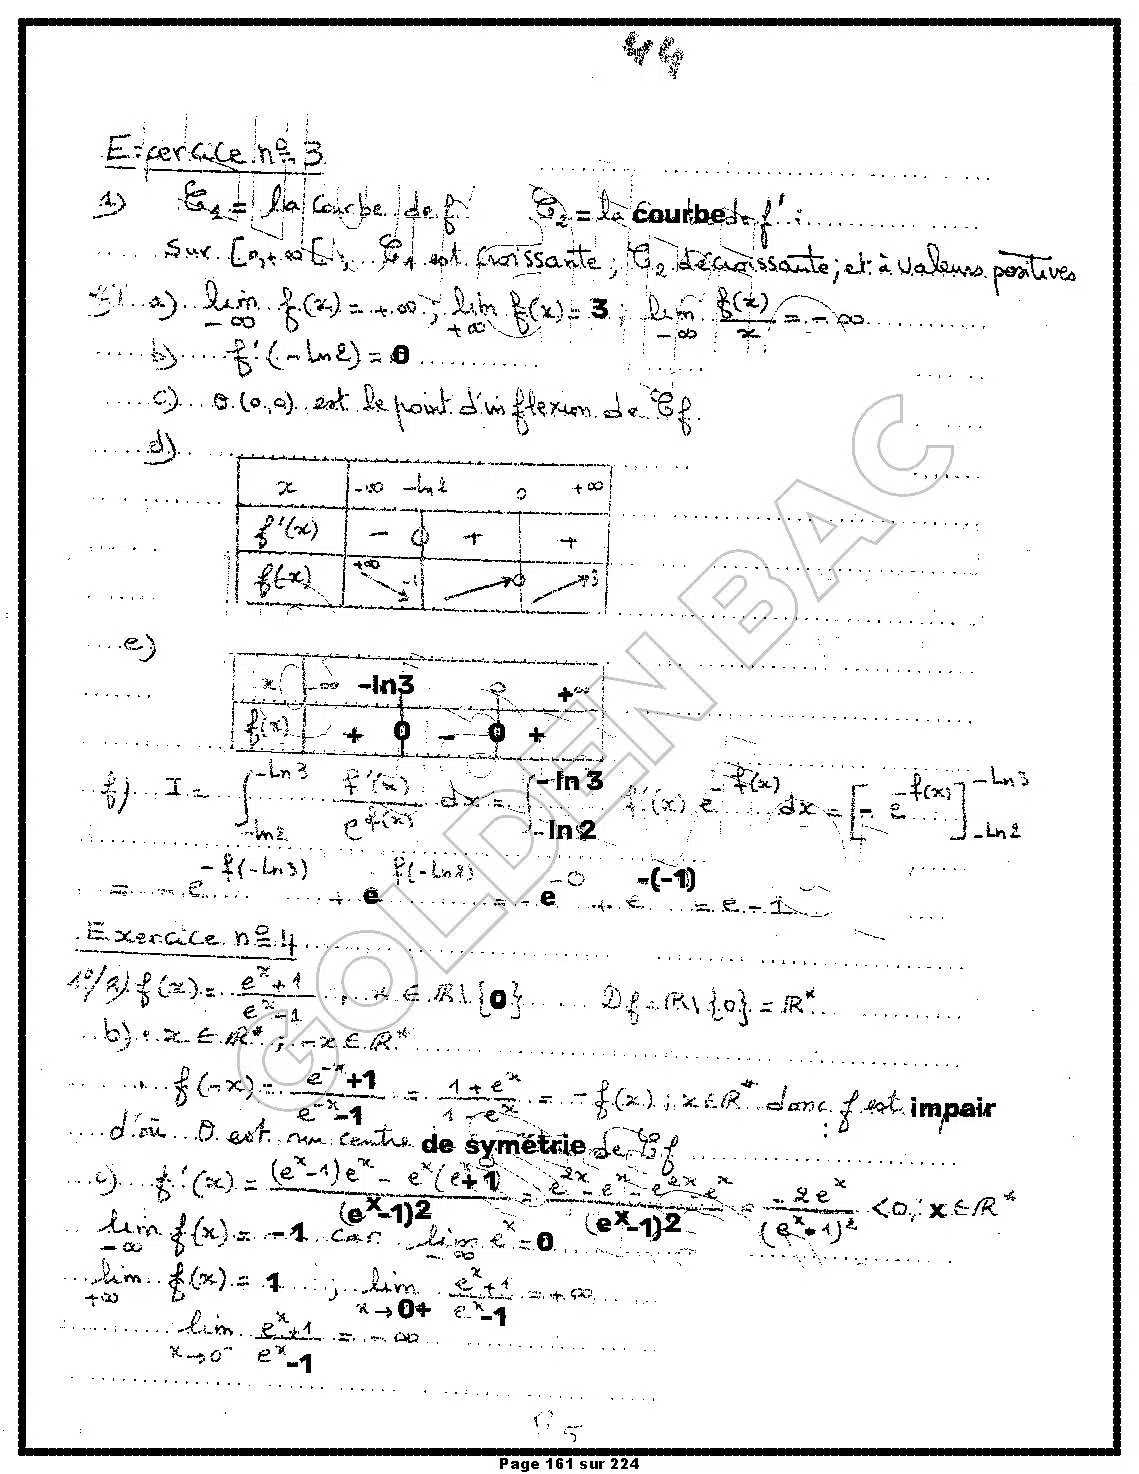 44
Exercice n° 3
1) C₁ = la courbe de f. C₂ = la courbe de f' :
Sur [0,+∞[, C₁ est croissante ; C₂ décroissante ; et à valeurs positives
a) lim f(x) = +∞ ; lim f(x) = 3 ; lim f(x)/x = -∞
-∞ +∞ -∞
b) f'(-ln2) = 0
c) O(0,0) est le point d'inflexion de Cf
d)
x -∞ -ln2 0 +∞
f'(x) - 0 + +
f(x) +∞ -1 0 3
e)
x -∞ -ln3 0 +∞
f(x) + 0 - 0 +
f) I = ∫_{-ln2}^{-ln3} f'(x)/e^{f(x)} dx = ∫_{-ln2}^{-ln3} f'(x) e^{-f(x)} dx = [-e^{-f(x)}]_{-ln2}^{-ln3}
= -e^{-f(-ln3)} + e^{f(-ln2)} = -e^{-0} + e^{-(-1)} = e-1
Exercice n° 4
1°/a) f(x) = (e^x+1)/(e^x-1) ; x ∈ ℝ\{0} Df = ℝ\{0} = ℝ*
b) • x ∈ ℝ* ; -x ∈ ℝ*
• f(-x) = (e^{-x}+1)/(e^{-x}-1) = (1+e^x)/(1-e^x) = -f(x) ; x ∈ ℝ* donc f est impair
d'où O est un centre de symétrie de Cf
c) f'(x) = ((e^x-1)e^x - e^x(e^x+1))/(e^x-1)2 = (e^{2x}-e^x-e^{2x}-e^x)/(e^x-1)2 = -2e^x/(e^x-1)² <0, x ∈ ℝ*
lim f(x) = -1 car lim e^x = 0
-∞ -∞
lim f(x) = 1 ; lim (e^x+1)/(e^x-1) = +∞
+∞ x→0+
lim (e^x+1)/(e^x-1) = -∞
x→0⁻
GOLDEN BAC
Page 161 sur 224